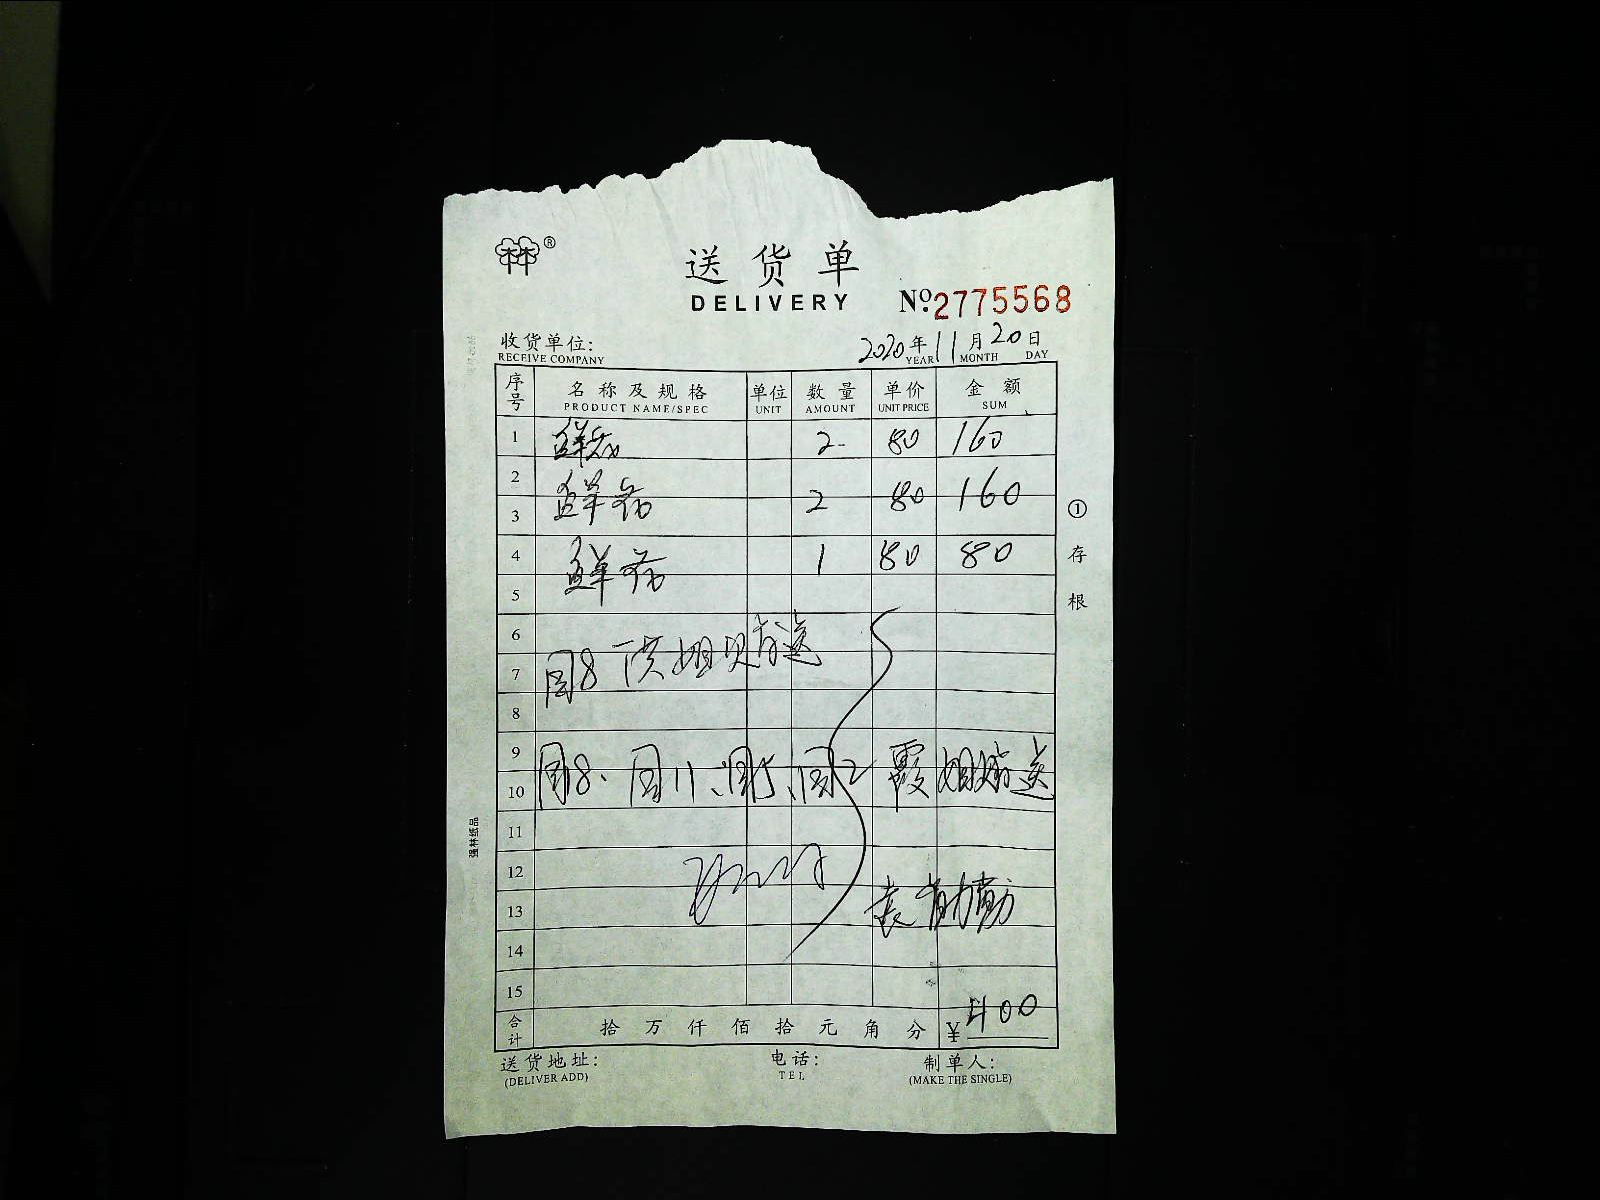 林®
送货单
DELIVERY
№ 2775568
收货单位:
RECEIVE COMPANY
2020年11月20日
YEAR MONTH DAY
序号 名称及规格 单位 数量 单价 金额
PRODUCT NAME/SPEC UNIT AMOUNT UNIT PRICE SUM
1 鲜花 2 80 160
2
鲜花 2 80 160
3
4 鲜花 1 80 80
5
6
7
8
9
10
11
12
13
14
15
合计 拾万仟佰拾元角分 ¥400
送货地址: 电话: 制单人:
(DELIVER ADD) TEL (MAKE THE SINGLE)
①存根
强林纸品